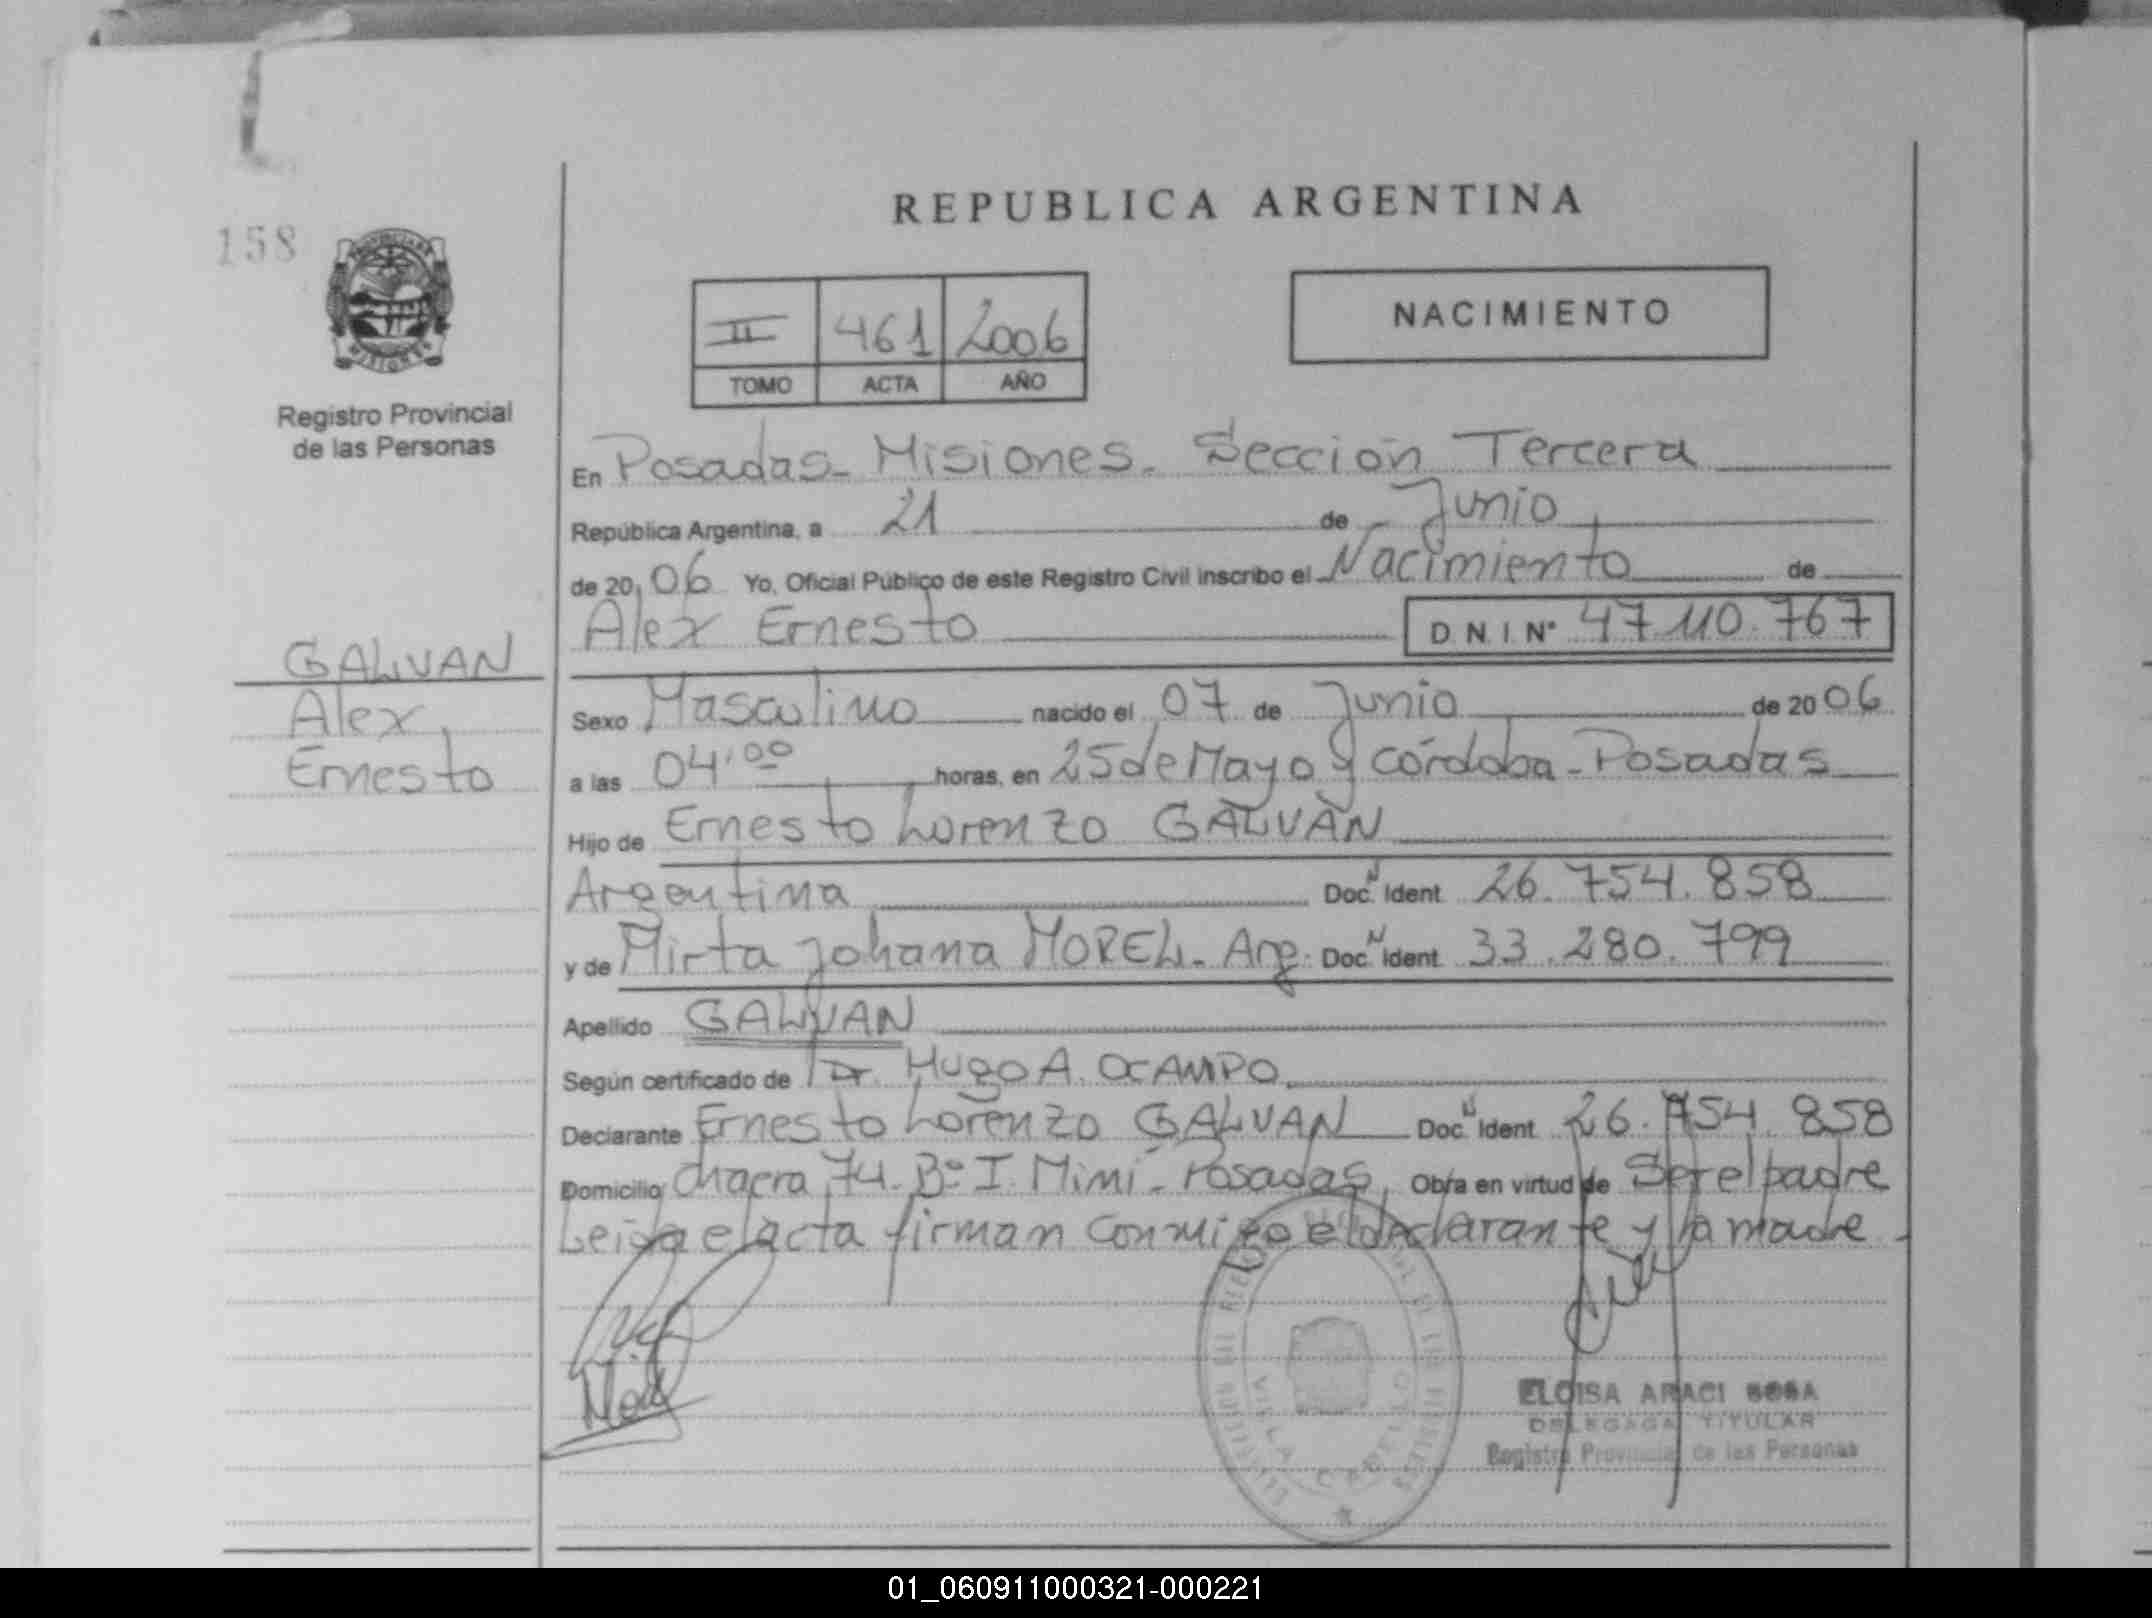 REPUBLICA ARGENTINA
158
PROVINCIA DE
MISIONES
Registro Provincial
de las Personas
II 461 2006
TOMO ACTA AÑO
NACIMIENTO
En Posadas - Misiones. Sección Tercera
República Argentina, a 21 de Junio
de 2006 Yo, Oficial Público de este Registro Civil inscribo el Nacimiento de
Alex Ernesto D.N.I. N° 47.110.767
GALVAN
Alex
Ernesto
Sexo Masculino nacido el 07 de Junio de 2006
a las 04,00 horas, en 25 de Mayo y Córdoba - Posadas
Hijo de Ernesto Lorenzo GALVAN
Argentina Doc. N Ident 26.754.858
y de Mirta Johana MOREL. Arg. Doc. N Ident 33.280.799
Apellido GALVAN
Según certificado de Dr. Hugo A. OCAMPO
Declarante Ernesto Lorenzo GALVAN Doc. N Ident 26.754.858
Domicilio Chacra 74. B° I. Mimi - Posadas Obra en virtud de Ser el padre
Leida el acta firman conmigo el declarante y la madre.
VILLA CABELLO
ELOISA ARACI SOSA
DELEGADA TITULAR
Registro Provincial de las Personas
01_060911000321-000221